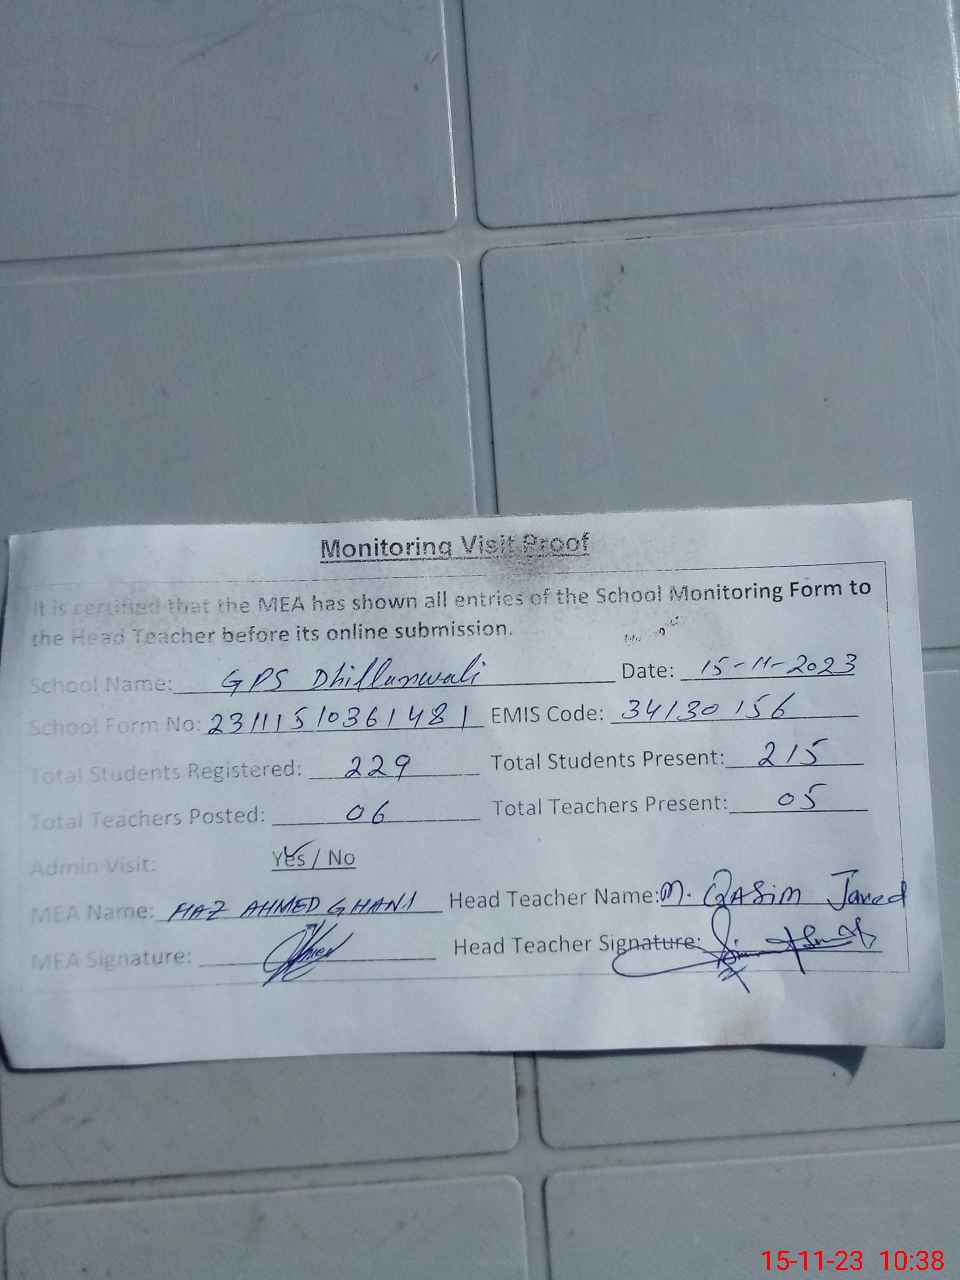 Monitoring Visit Proof
It is certified that the MEA has shown all entries of the School Monitoring Form to
the Head Teacher before its online submission.
School Name: GPS Dhillanwali Date: 15-11-2023
School Form No: 23111510361481 EMIS Code: 34130156
Total Students Registered: 229 Total Students Present: 215
Total Teachers Posted: 06 Total Teachers Present: 05
Admin Visit: Yes / No
MEA Name: FIAZ AHMED GHANI Head Teacher Name: M. QASim Javed
MEA Signature: Head Teacher Signature:
15-11-23 10:38